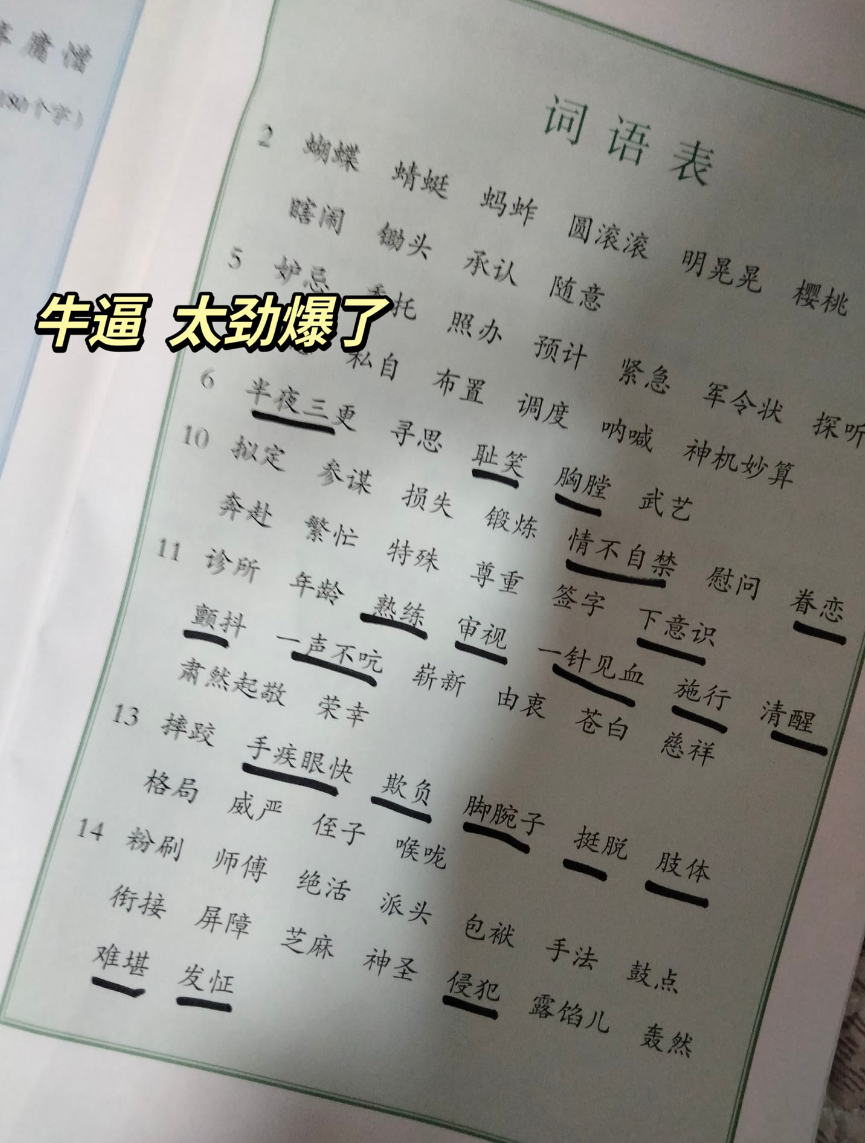 庸 懦
80个字）
词语表
2 蝴蝶 蜻蜓 蚂蚱 圆滚滚 明晃晃 樱桃
瞎闹 锄头 承认 随意
5 妒忌 托 照办 预计 紧急 军令状 探听
私自 布置 调度 呐喊 神机妙算
牛逼 太劲爆了
6 半夜三更 寻思 耻笑 胸膛 武艺
10 拟定 参谋 损失 锻炼 情不自禁 慰问 眷恋
奔赴 繁忙 特殊 尊重 签字 下意识
11 诊所 年龄 熟练 审视 一针见血 施行 清醒
颤抖 一声不吭 崭新 由衷 苍白 慈祥
肃然起敬 荣幸
13 摔跤 手疾眼快 欺负 脚腕子 挺脱 肢体
格局 威严 侄子 喉咙
14 粉刷 师傅 绝活 派头 包袱 手法 鼓点
衔接 屏障 芝麻 神圣 侵犯 露馅儿 轰然
难堪 发怔